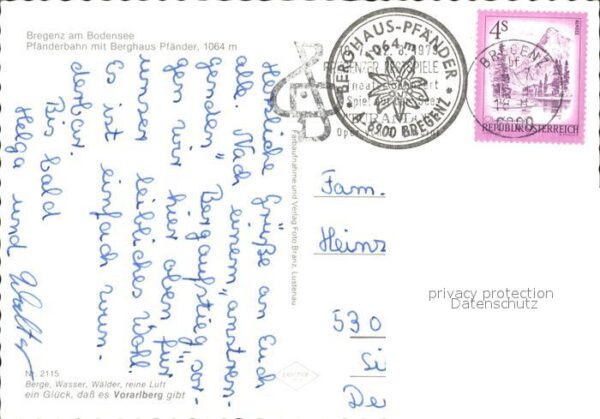 Bregenz am Bodensee
Pfänderbahn mit Berghaus Pfänder, 1064 m
Herzliche Grüße an Euch
alle. Nach einem "anstren-
genden" Bergaufstieg sor-
gen wir hier oben für
unser leibliches Wohl.
Es ist einfach wun-
derbar.
Bis bald
Helga und Walter
Nr. 2115
Berge, Wasser, Wälder, reine Luft
ein Glück, daß es Vorarlberg gibt
Farbaufnahme und Verlag Foto Branz, Lustenau
BERGHAUS-PFÄNDER
1064 m
A-6900 BREGENZ
BREGENZ
6900
4S
REPUBLIK ÖSTERREICH
Fam.
Heinz
530
Si
De
privacy protection
Datenschutz